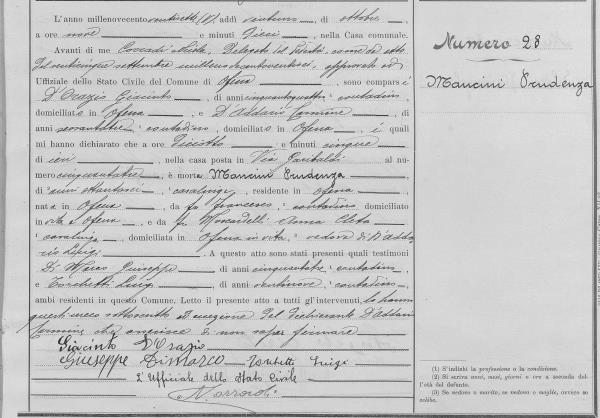 L'anno millenovecento ventisette (2), addì ventuno di ottobre,
a ore nove e minuti dieci, nella Casa comunale.
Avanti di me
Uffiziale dello Stato Civile del Comune di Ofena, sono comparsi
D'Orazio Giacinto, di anni cinquantaquattro, contadino,
domiciliato in Ofena e D'Addario Carmine, di
anni sessantatre, contadino, domiciliato in Ofena, i quali
mi hanno dichiarato che a ore diciotto e minuti cinque
di ieri, nella casa posta in Via Garibaldi al nu-
mero cinquantatre, è morta Mancini Prudenza
di anni ottantasei, casalinga, residente in Ofena
nata in Ofena, da fu Francesco, contadino, domiciliato
in vita a Ofena e da fu Moscardelli Anna Cleta
casalinga, domiciliata in Ofena in vita, vedova di D'Adda-
rio Luigi. A questo atto sono stati presenti quali testimoni
Di Marco Giuseppe di anni cinquantatre, contadino
e Torchetti Luigi, di anni ventinove, contadino,
ambi residenti in questo Comune. Letto il presente atto a tutti gl'intervenuti, lo hanno
questi meco sottoscritto ad eccezione del dichiarante D'Addario
Carmine che asserisce di non saper firmare
Giacinto D'Orazio
Giuseppe Dimarco Torchetti Luigi
L'Uffiziale dello Stato Civile
Numero 28
Mancini Prudenza
(1) S'indichi la professione o la condizione.
(2) Si scriva anni, mesi, giorni o ore a seconda del-
l'età del defunto.
(3) Se vedovo o marito, se vedova o moglie, ovvero se
celibe.